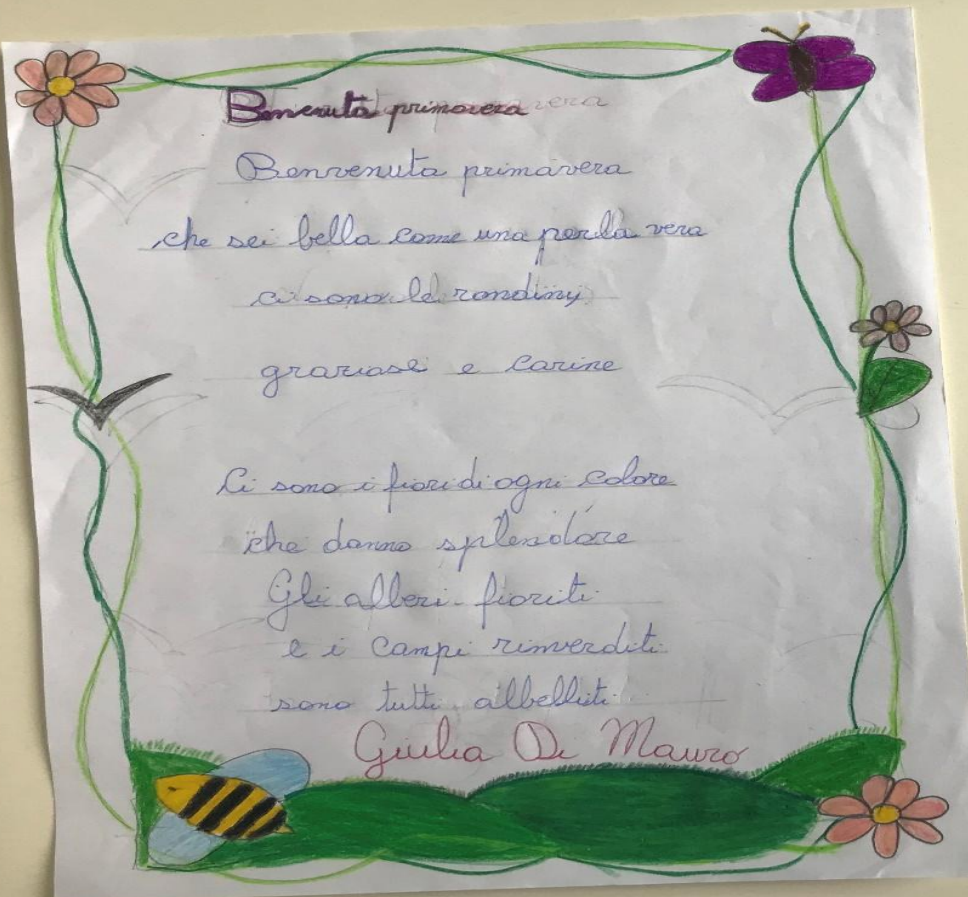 Benvenuta primavera
Benvenuta primavera
che sei bella come una perla vera
ci sono le rondiny
graziose e carine
Ci sono i fiori di ogni colore
che danno splendore
Gli alberi fioriti
e i campi rinverditi
sono tutti abbelliti
Giulia Di Mauro